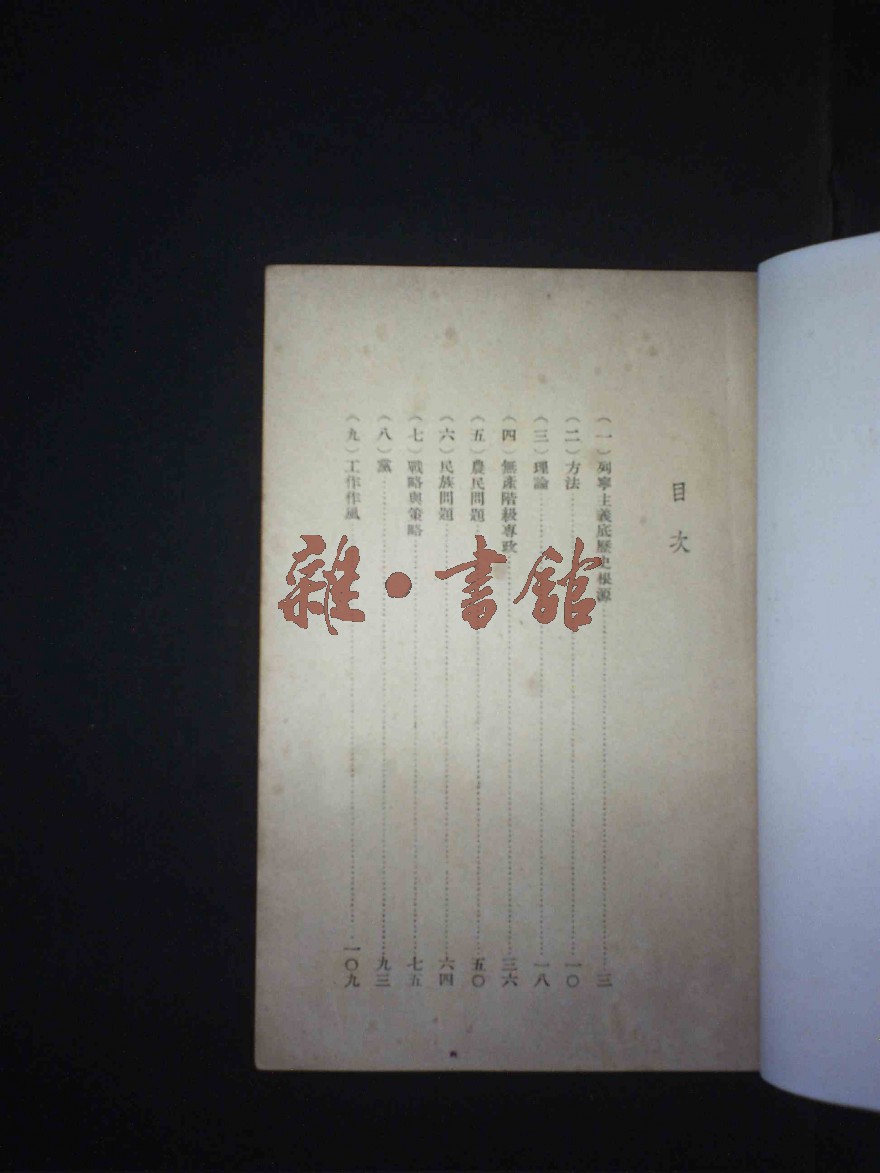 目次
（一）列寧主義底歷史根源……三
（二）方法……一〇
（三）理論……一八
（四）無產階級專政……三六
（五）農民問題……五〇
（六）民族問題……六四
（七）戰略與策略……七五
（八）黨……九三
（九）工作作風……一〇九
雜·書館